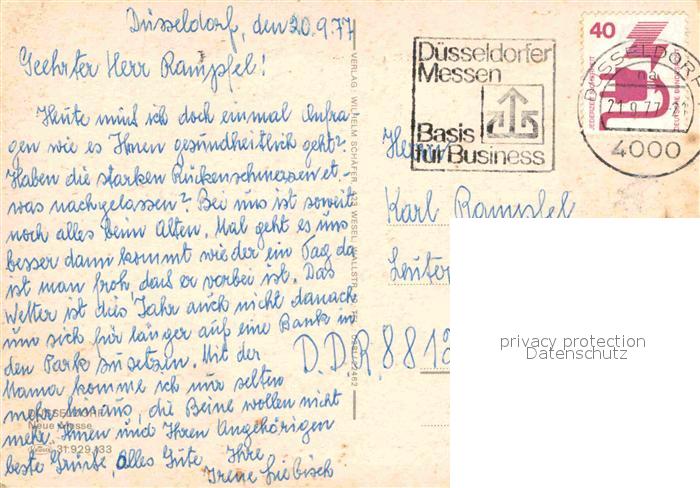 Düsseldorf, den 20.9.77
Geehrter Herr Rampfel!
Heute muß ich doch einmal Anfra
gen wie es Ihnen gesundheitlich geht?
Haben die starken Rückenschmerzen et-
was nachgelassen? Bei uns ist soweit
noch alles beim Alten. Mal geht es uns
besser dann kommt wieder ein Tag da
ist man froh, daß er vorbei ist. Das
Wetter ist dies' Jahr auch nicht danach
um sich für länger auf eine Bank in
den Park zu setzen. Mit der
Mama komme ich nur selten
mehr hinaus, die Beine wollen nicht
mehr. Ihnen und Ihren Angehörigen
beste Grüße, Alles Gute Ihre
Irene Liebisch
DÜSSELDORF
Neue Messe
31.929.133
VERLAG: WILHELM SCHÄFER, 423 WESEL, WALLSTR.
Düsseldorfer
Messen
Basis
für Business
40
JEDERZEIT SICHERHEIT
DEUTSCHE BUNDESPOST
DÜSSELDORF
21.9.77
4000
Herrn
Karl Rampfel
Leuter
D.D.R. 881
privacy protection
Datenschutz